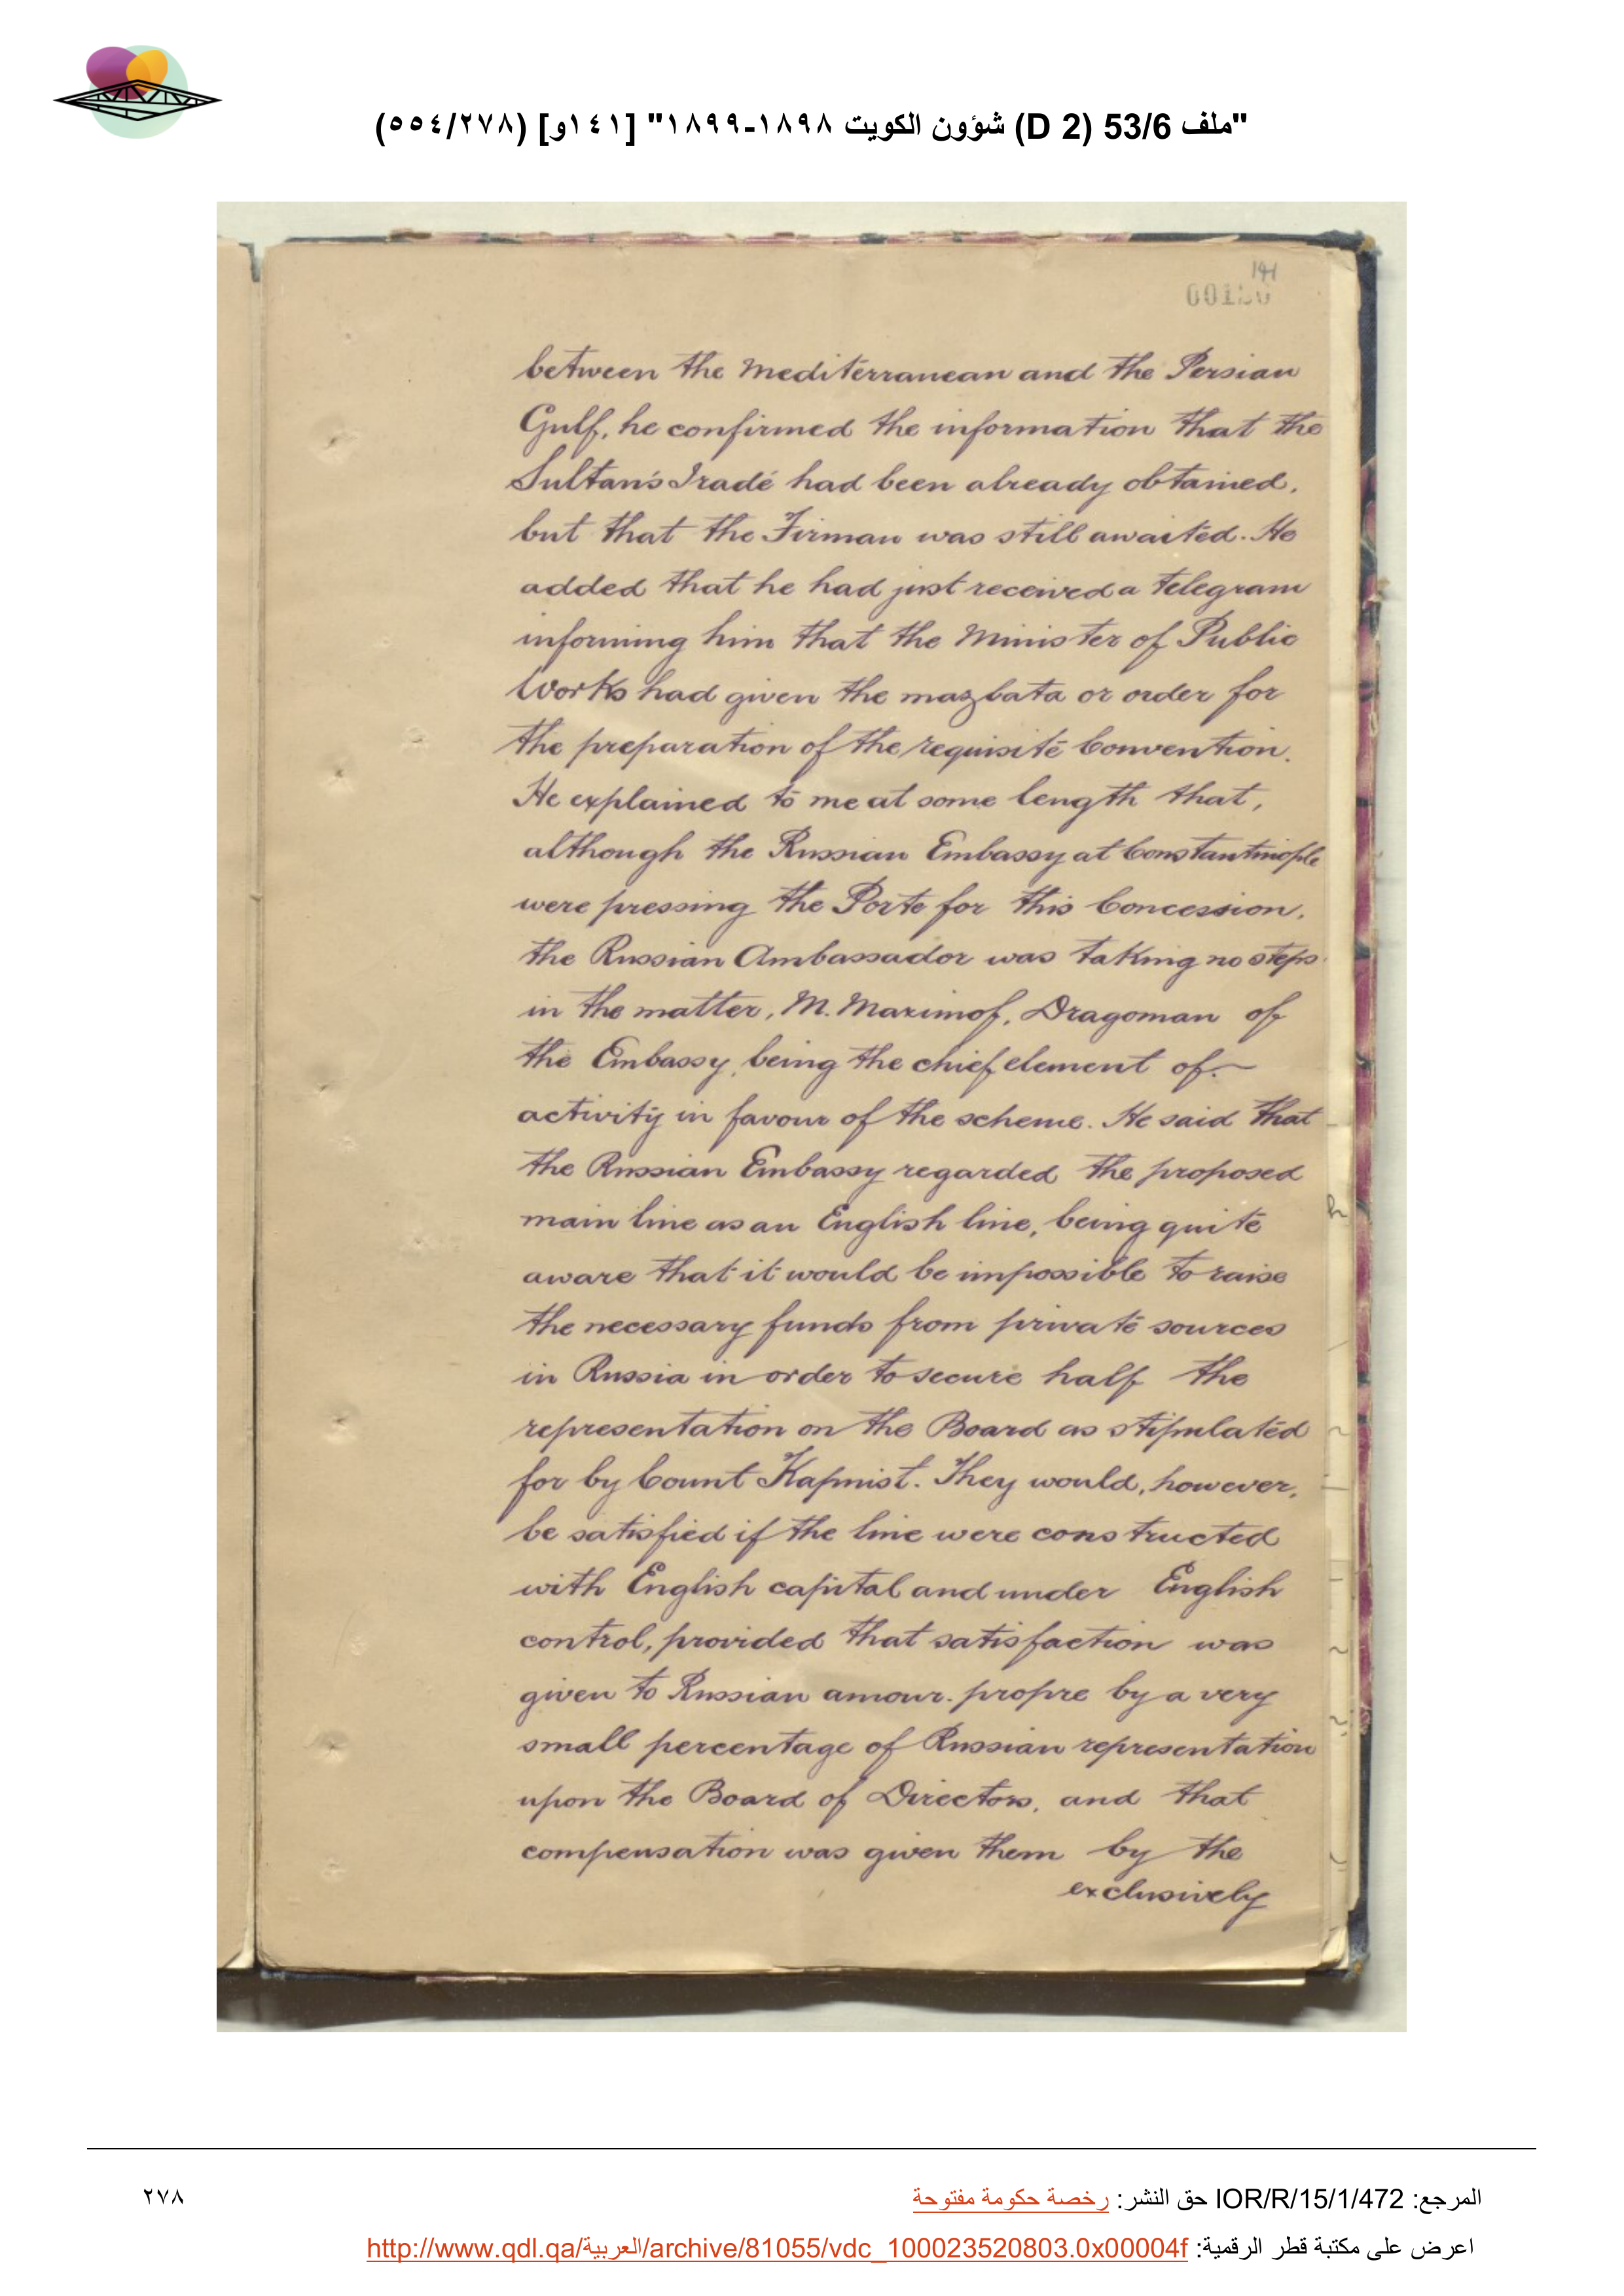 "ملف 53/6 (D 2) شؤون الكويت ١٨٩٨-١٨٩٩" [١٤١و] (٥٥٤/٢٧٨)
141
between the Mediterranean and the Persian
Gulf, he confirmed the information that the
Sultan's Iradé had been already obtained,
but that the Firman was still awaited. He
added that he had just received a telegram
informing him that the Minister of Public
Works had given the mazbata or order for
the preparation of the requisite Convention.
He explained to me at some length that,
although the Russian Embassy at Constantinople
were pressing the Porte for this Concession,
the Russian Ambassador was taking no steps
in the matter, M. Maximof, Dragoman of
the Embassy, being the chief element of
activity in favour of the scheme. He said that
the Russian Embassy regarded the proposed
main line as an English line, being quite
aware that it would be impossible to raise
the necessary funds from private sources
in Russia in order to secure half the
representation on the Board as stipulated
for by Count Kapnist. They would, however,
be satisfied if the line were constructed
with English capital and under English
control, provided that satisfaction was
given to Russian amour-propre by a very
small percentage of Russian representation
upon the Board of Directors, and that
compensation was given them by the
exclusively
المرجع: IOR/R/15/1/472 حق النشر: رخصة حكومة مفتوحة
٢٧٨
اعرض على مكتبة قطر الرقمية: http://www.qdl.qa/العربية/archive/81055/vdc_100023520803.0x00004f